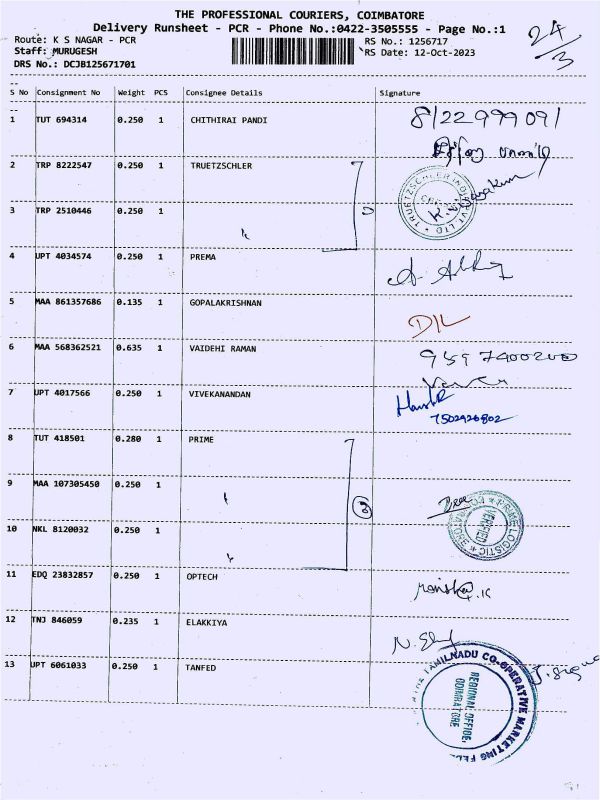 THE PROFESSIONAL COURIERS, COIMBATORE
Delivery Runsheet - PCR - Phone No.:0422-3505555 - Page No.:1
Route: K S NAGAR - PCR
RS No.: 1256717
Staff: MURUGESH
RS Date: 12-Oct-2023
DRS No.: DCJB125671701
24/3
S No Consignment No Weight PCS Consignee Details Signature
1 TUT 694314 0.250 1 CHITHIRAI PANDI
2 TRP 8222547 0.250 1 TRUETZSCHLER
3 TRP 2510446 0.250 1
4 UPT 4034574 0.250 1 PREMA
5 MAA 861357686 0.135 1 GOPALAKRISHNAN D/L
6 MAA 568362521 0.635 1 VAIDEHI RAMAN
7 UPT 4017566 0.250 1 VIVEKANANDAN
7502926802
8 TUT 418501 0.280 1 PRIME
9 MAA 107305450 0.250 1
10 NKL 8120032 0.250 1
PRIME LOGISTIC
VERIFIED
11 EDQ 23832857 0.250 1 OPTECH
12 TNJ 846059 0.235 1 ELAKKIYA
13 UPT 6061033 0.250 1 TANFED
TAMILNADU CO-OPERATIVE MARKETING FED
REGIONAL OFFICE,
COIMBATORE